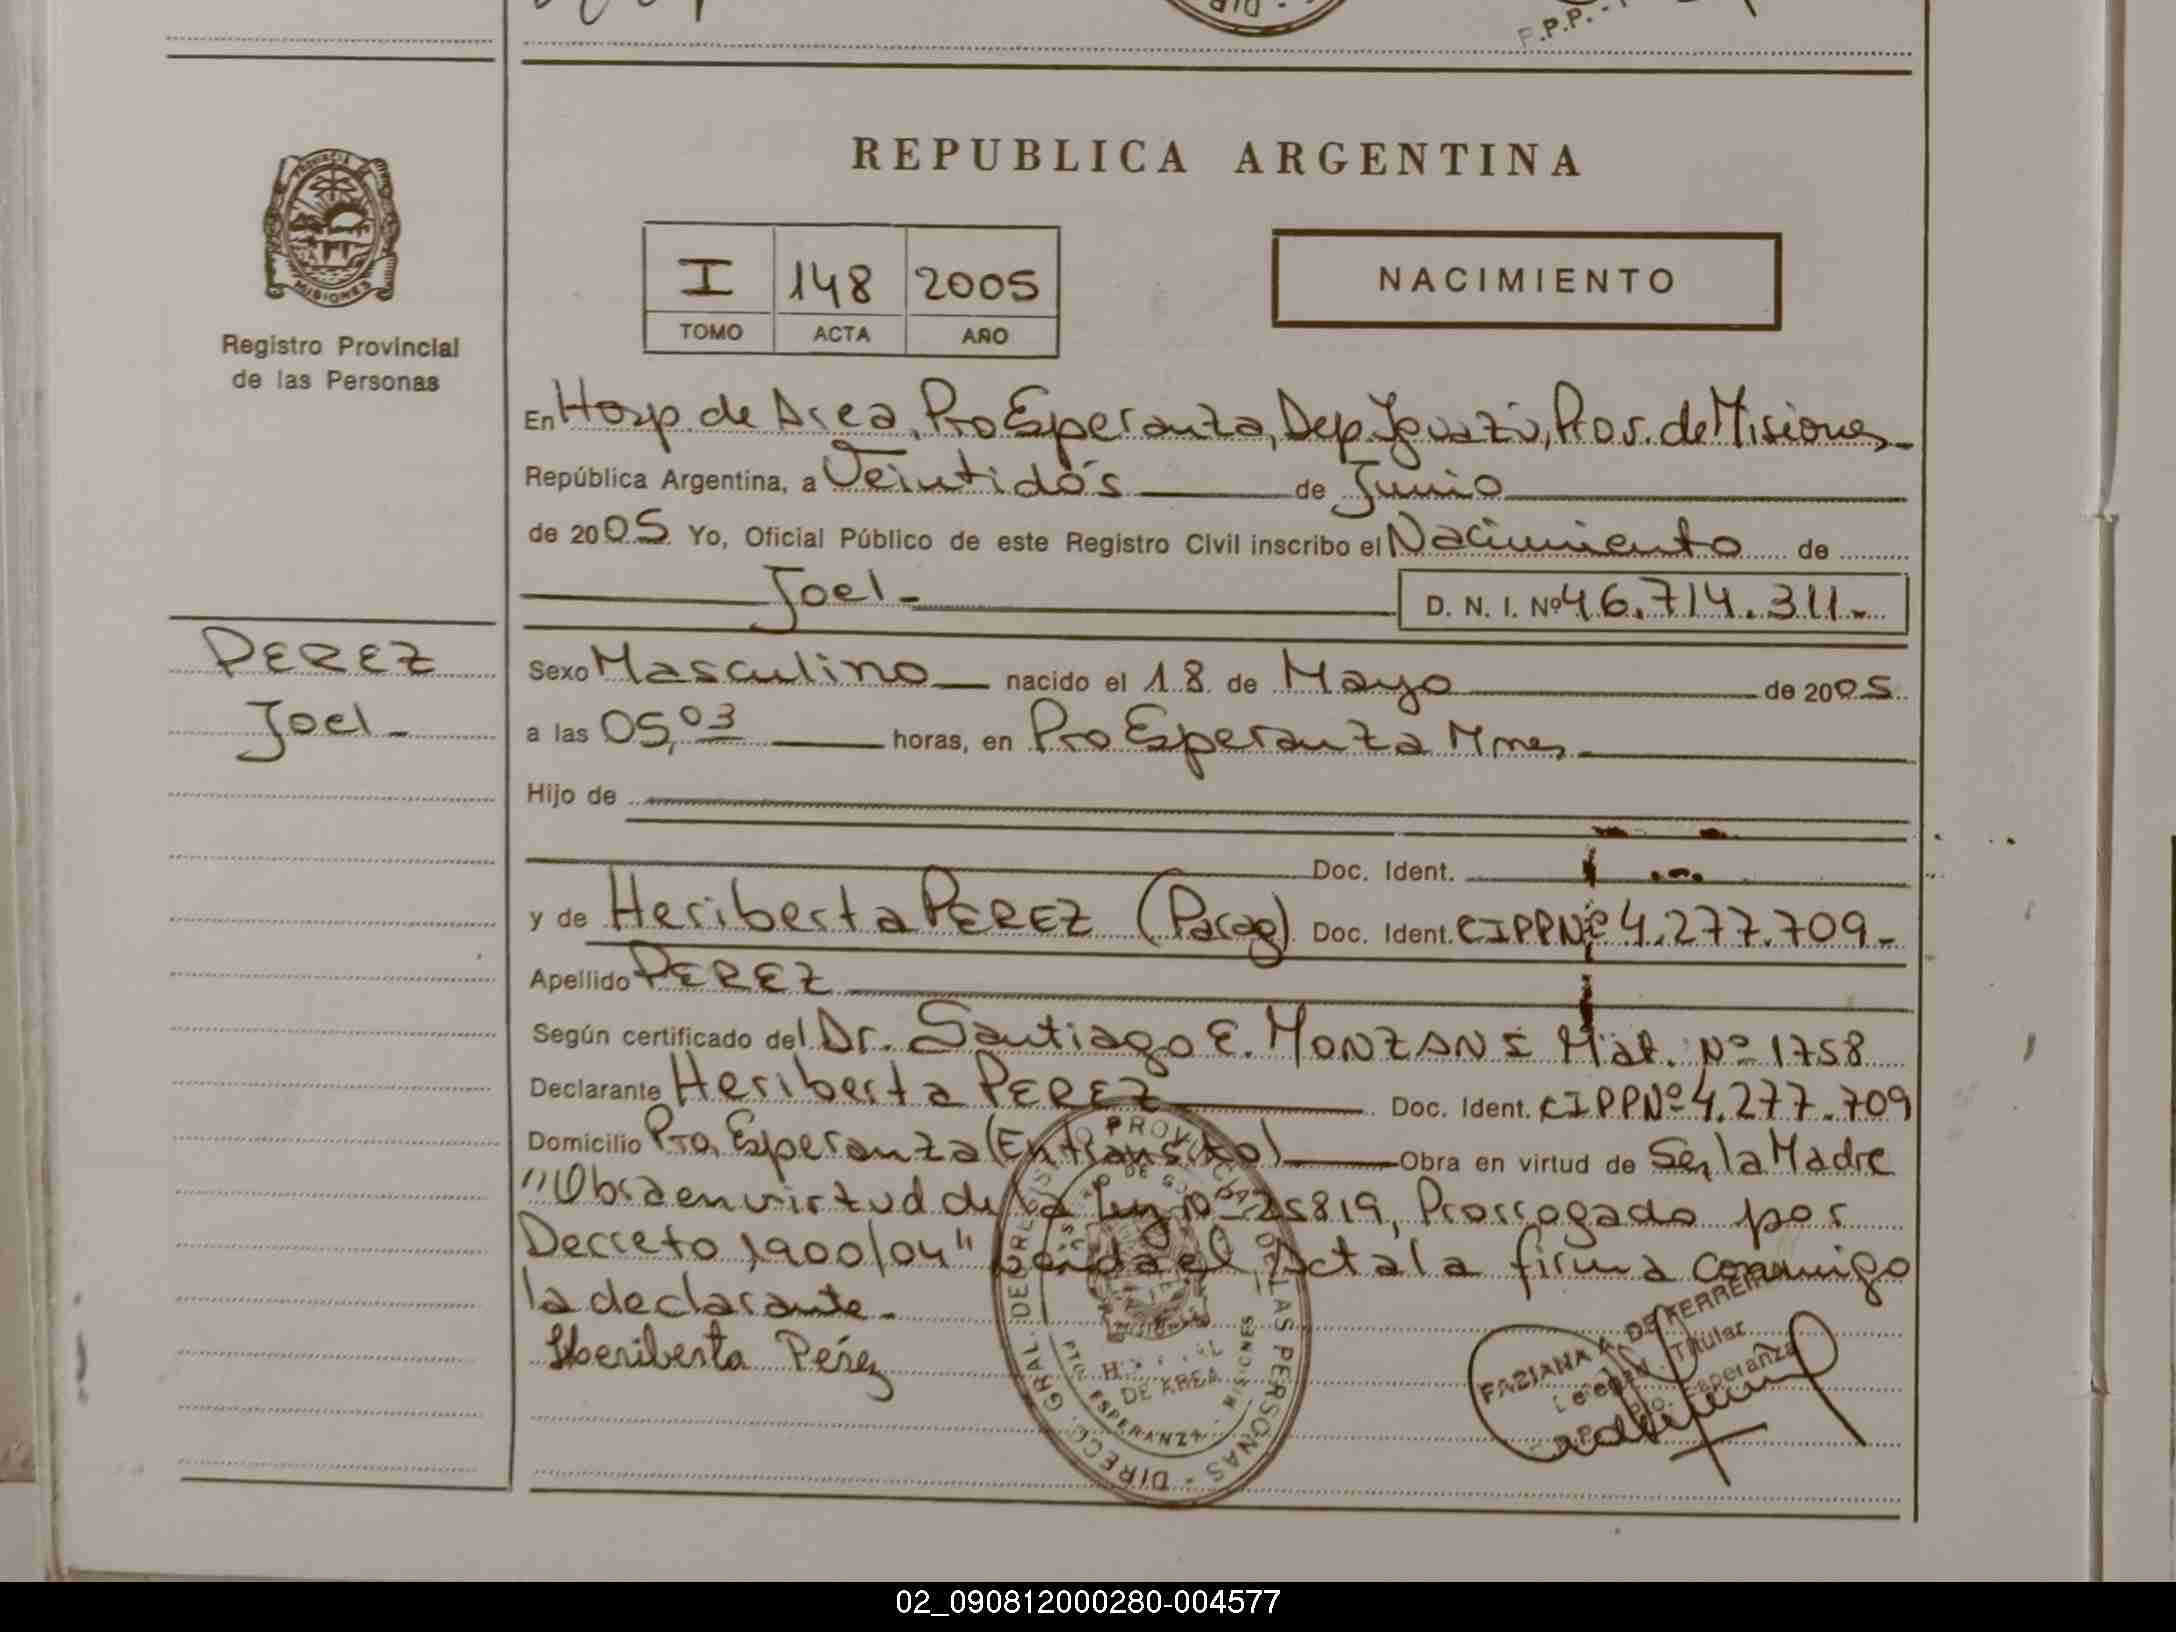 F.P.P. -
REPUBLICA ARGENTINA
PROVINCIA
MISIONES
Registro Provincial
de las Personas
I 148 2005
TOMO ACTA AÑO
NACIMIENTO
En Hosp. de Area, Pto Esperanza, Dep. Iguazú, Prov. de Misiones
República Argentina, a Veintidós de Junio
de 2005 Yo, Oficial Público de este Registro Civil inscribo el Nacimiento de
Joel - D. N. I. Nº 46.714.311.-
PEREZ
Joel -
Sexo Masculino nacido el 18 de Mayo de 2005
a las 05,03 horas, en Pto Esperanza Mnes
Hijo de
Doc. Ident.
y de Heriberta PEREZ (Parag) Doc. Ident. CIPPNº 4.277.709.-
Apellido PEREZ
Según certificado del Dr. Santiago E. MONZANI Mat. Nº 1758
Declarante Heriberta PEREZ Doc. Ident. CIPPNº 4.277.709
Domicilio Pto. Esperanza (En transito) Obra en virtud de Ser la Madre
"Obra en virtud de la Ley nº 25819, Prorrogado por
Decreto 1900/04" el Acta la firma conmigo
la declarante.-
Heriberta Pérez
DIRECC. GRAL. DEL REGISTRO PROVINCIAL DE LAS PERSONAS
DE AREA
PTO. ESPERANZA - MISIONES
FABIANA A. DE FERREIRA
Titular
Pto. Esperanza
02_090812000280-004577